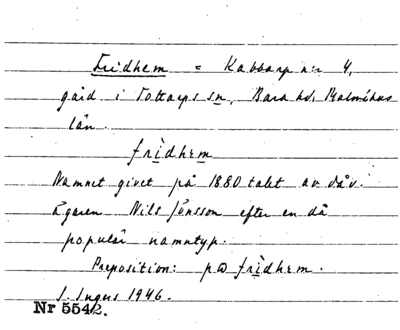 Fridhem = Kabbarp n:r 4,
gård i Tottarps sn, Bara hd, Malmöhus
län.
fridhem
Namnet givet på 1880 talet av dåv.
ägaren Nils Jönsson efter en då
populär namntyp.
Preposition: på fridhem.
I. Ingers 1946.
Nr 5542.